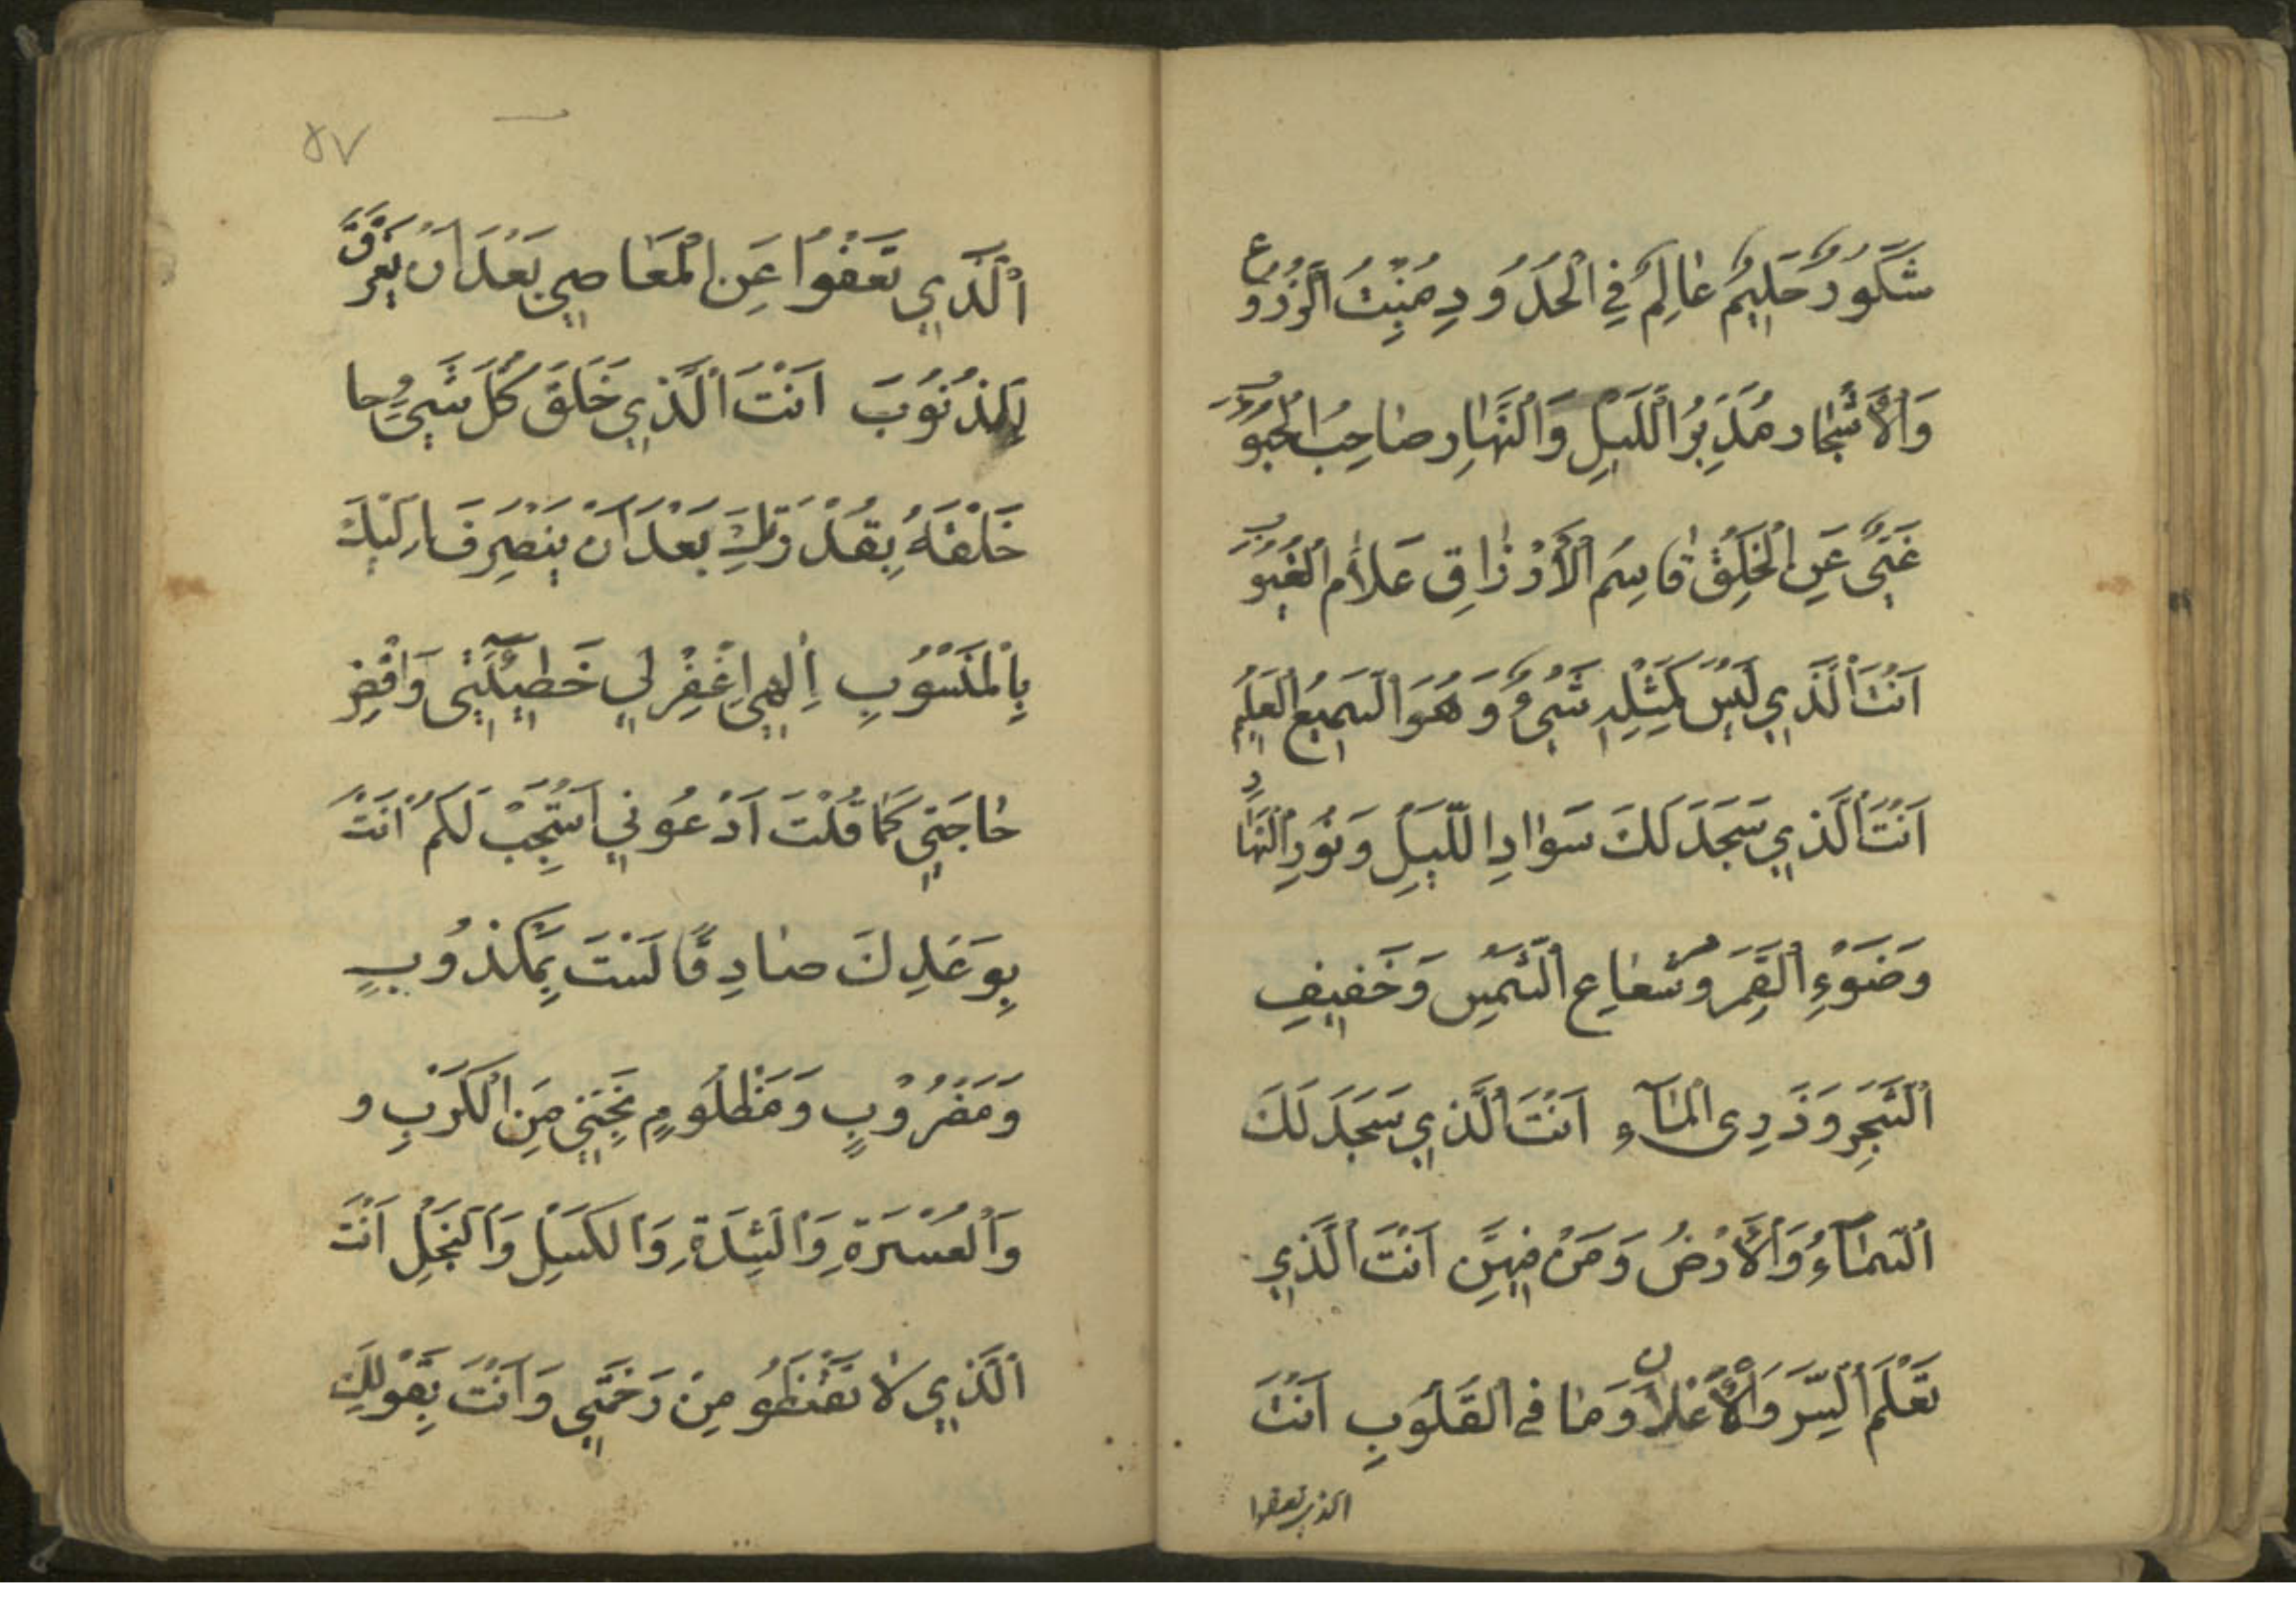 شَكُورٌ حَلِيمٌ عَالِمٌ فِي الْحُدُودِ مُنْبِتُ الزُّرُوعِ
وَالْأَشْجَارِ مُدَبِّرُ اللَّيْلِ وَالنَّهَارِ صَاحِبُ الْجَبَرُوْ
غَنِيٌّ عَنِ الْخَلْقِ قَاسِمُ الْأَرْزَاقِ عَلَّامُ الْغُيُوْبِ
اَنْتَ الَّذِي لَيْسَ كَمِثْلِهِ شَيْءٌ وَهُوَ السَّمِيعُ الْعَلِيمُ
اَنْتَ الَّذِي سَجَدَ لَكَ سَوَادِ اللَّيْلِ وَنُورِ النَّهَارِ
وَضَوْءِ الْقَمَرِ وَشُعَاعِ الشَّمْسِ وَخَفِيفِ
الشَّجَرِ وَدَوِى الْمَآءِ اَنْتَ الَّذِي سَجَدَ لَكَ
السَّمَآءُ وَالْأَرْضُ وَمَنْ فِيهِنَّ اَنْتَ الَّذِي
تَعْلَمُ السِّرَّ وَالْأَعْلَانَ وَمَا فِي الْقُلُوبِ اَنْتَ
الذي تعفوا
٨٧
الَّذِي تَعْفُوا عَنِ الْمَعَاصِي بَعْدَ اَنْ يَغْرَقَ
لِلذُنُوبَ اَنْتَ الَّذِي خَلَقَ كُلَّ شَيْءٍ حا
خَلْقَهُ بِقُدْرَتِكَ بَعْدَ اَنْ يَنْصَرِفَ اِلَيْكَ
بِالْمَنْسُوبِ اِلٰهِي اغْفِرْ لِي خَطِيْئَتِي وَاقْضِ
حَاجَتِي كَمَا قُلْتَ اَدْعُونِي اَسْتَجِبْ لَكُمْ اَنْتَ
بِوَعْدِكَ صَادِقًا لَسْتَ بِمَكْذُوبٍ
وَمَضْرُوْبٍ وَمَظْلُومٍ نَجِّنِي مِنَ الْكَرْبِ و
وَالْعُسْرَةِ وَالشِّدَةِ وَالْكَسَلِ وَالْبَخَلِ اَنْتَ
الَّذِي لَا تَقْنَطُو مِنْ رَحْمَتِي وَاَنْتَ بِقَوْلِكَ